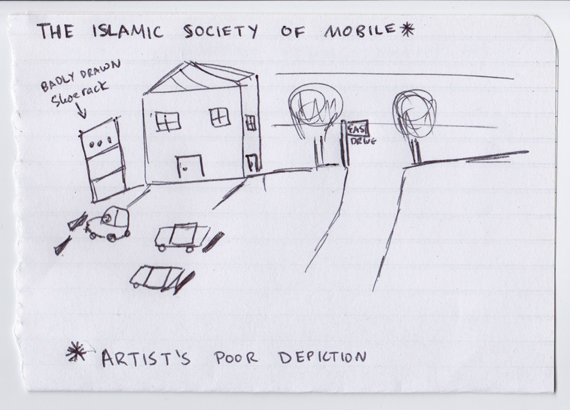 THE ISLAMIC SOCIETY OF MOBILE*
BADLY DRAWN
Shoe rack
EAST
DRIVE
* ARTIST'S POOR DEPICTION